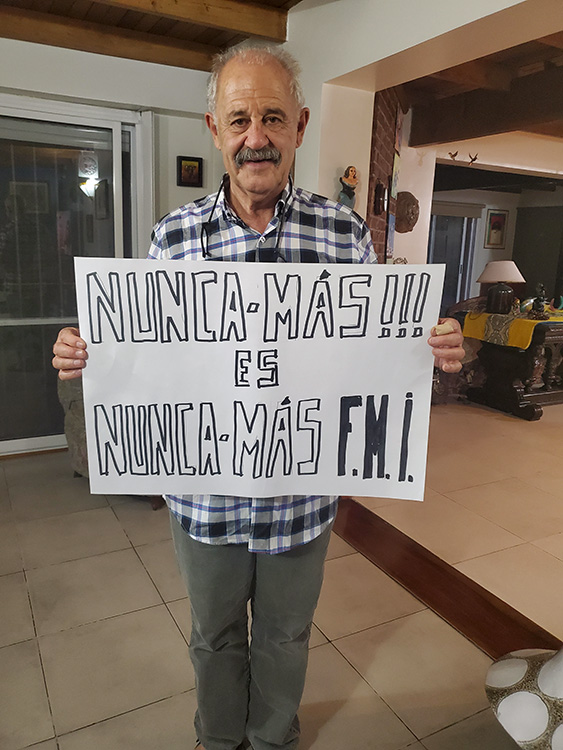 NUNCA-MÁS!!!
ES
NUNCA-MÁS F.M.I.